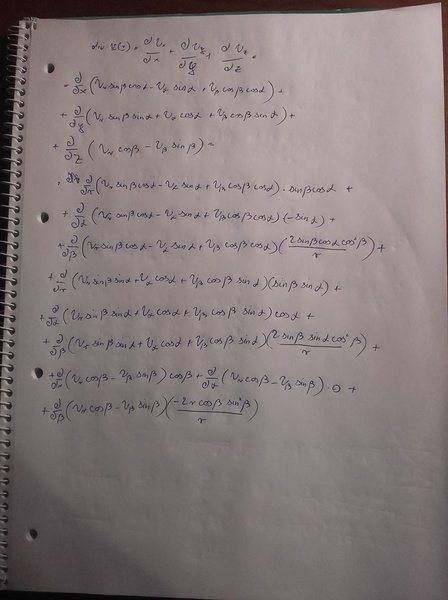 div v(r) = ∂Vx/∂x + ∂Vy/∂y + ∂Vz/∂z =
= ∂/∂x (Vr sinβ cosα - Vα sinα + Vβ cosβ cosα) +
+ ∂/∂y (Vr sinβ sinα + Vα cosα + Vβ cosβ sinα) +
+ ∂/∂z (Vr cosβ - Vβ sinβ) =
= ∂/∂r (Vr sinβ cosα - Vα sinα + Vβ cosβ cosα) · sinβ cosα +
+ ∂/∂α (Vr sinβ cosα - Vα sinα + Vβ cosβ cosα) (-sinα) +
+ ∂/∂β (Vr sinβ cosα - Vα sinα + Vβ cosβ cosα) (2 sinβ cosα cos²β / r) +
+ ∂/∂r (Vr sinβ sinα + Vα cosα + Vβ cosβ sinα) (sinβ sinα) +
+ ∂/∂α (Vr sinβ sinα + Vα cosα + Vβ cosβ sinα) cosα +
+ ∂/∂β (Vr sinβ sinα + Vα cosα + Vβ cosβ sinα) (2 sinβ sinα cos²β / r) +
+ ∂/∂r (Vr cosβ - Vβ sinβ) cosβ + ∂/∂α (Vr cosβ - Vβ sinβ) · 0 +
+ ∂/∂β (Vr cosβ - Vβ sinβ) (-2r cosβ sin²β / r)